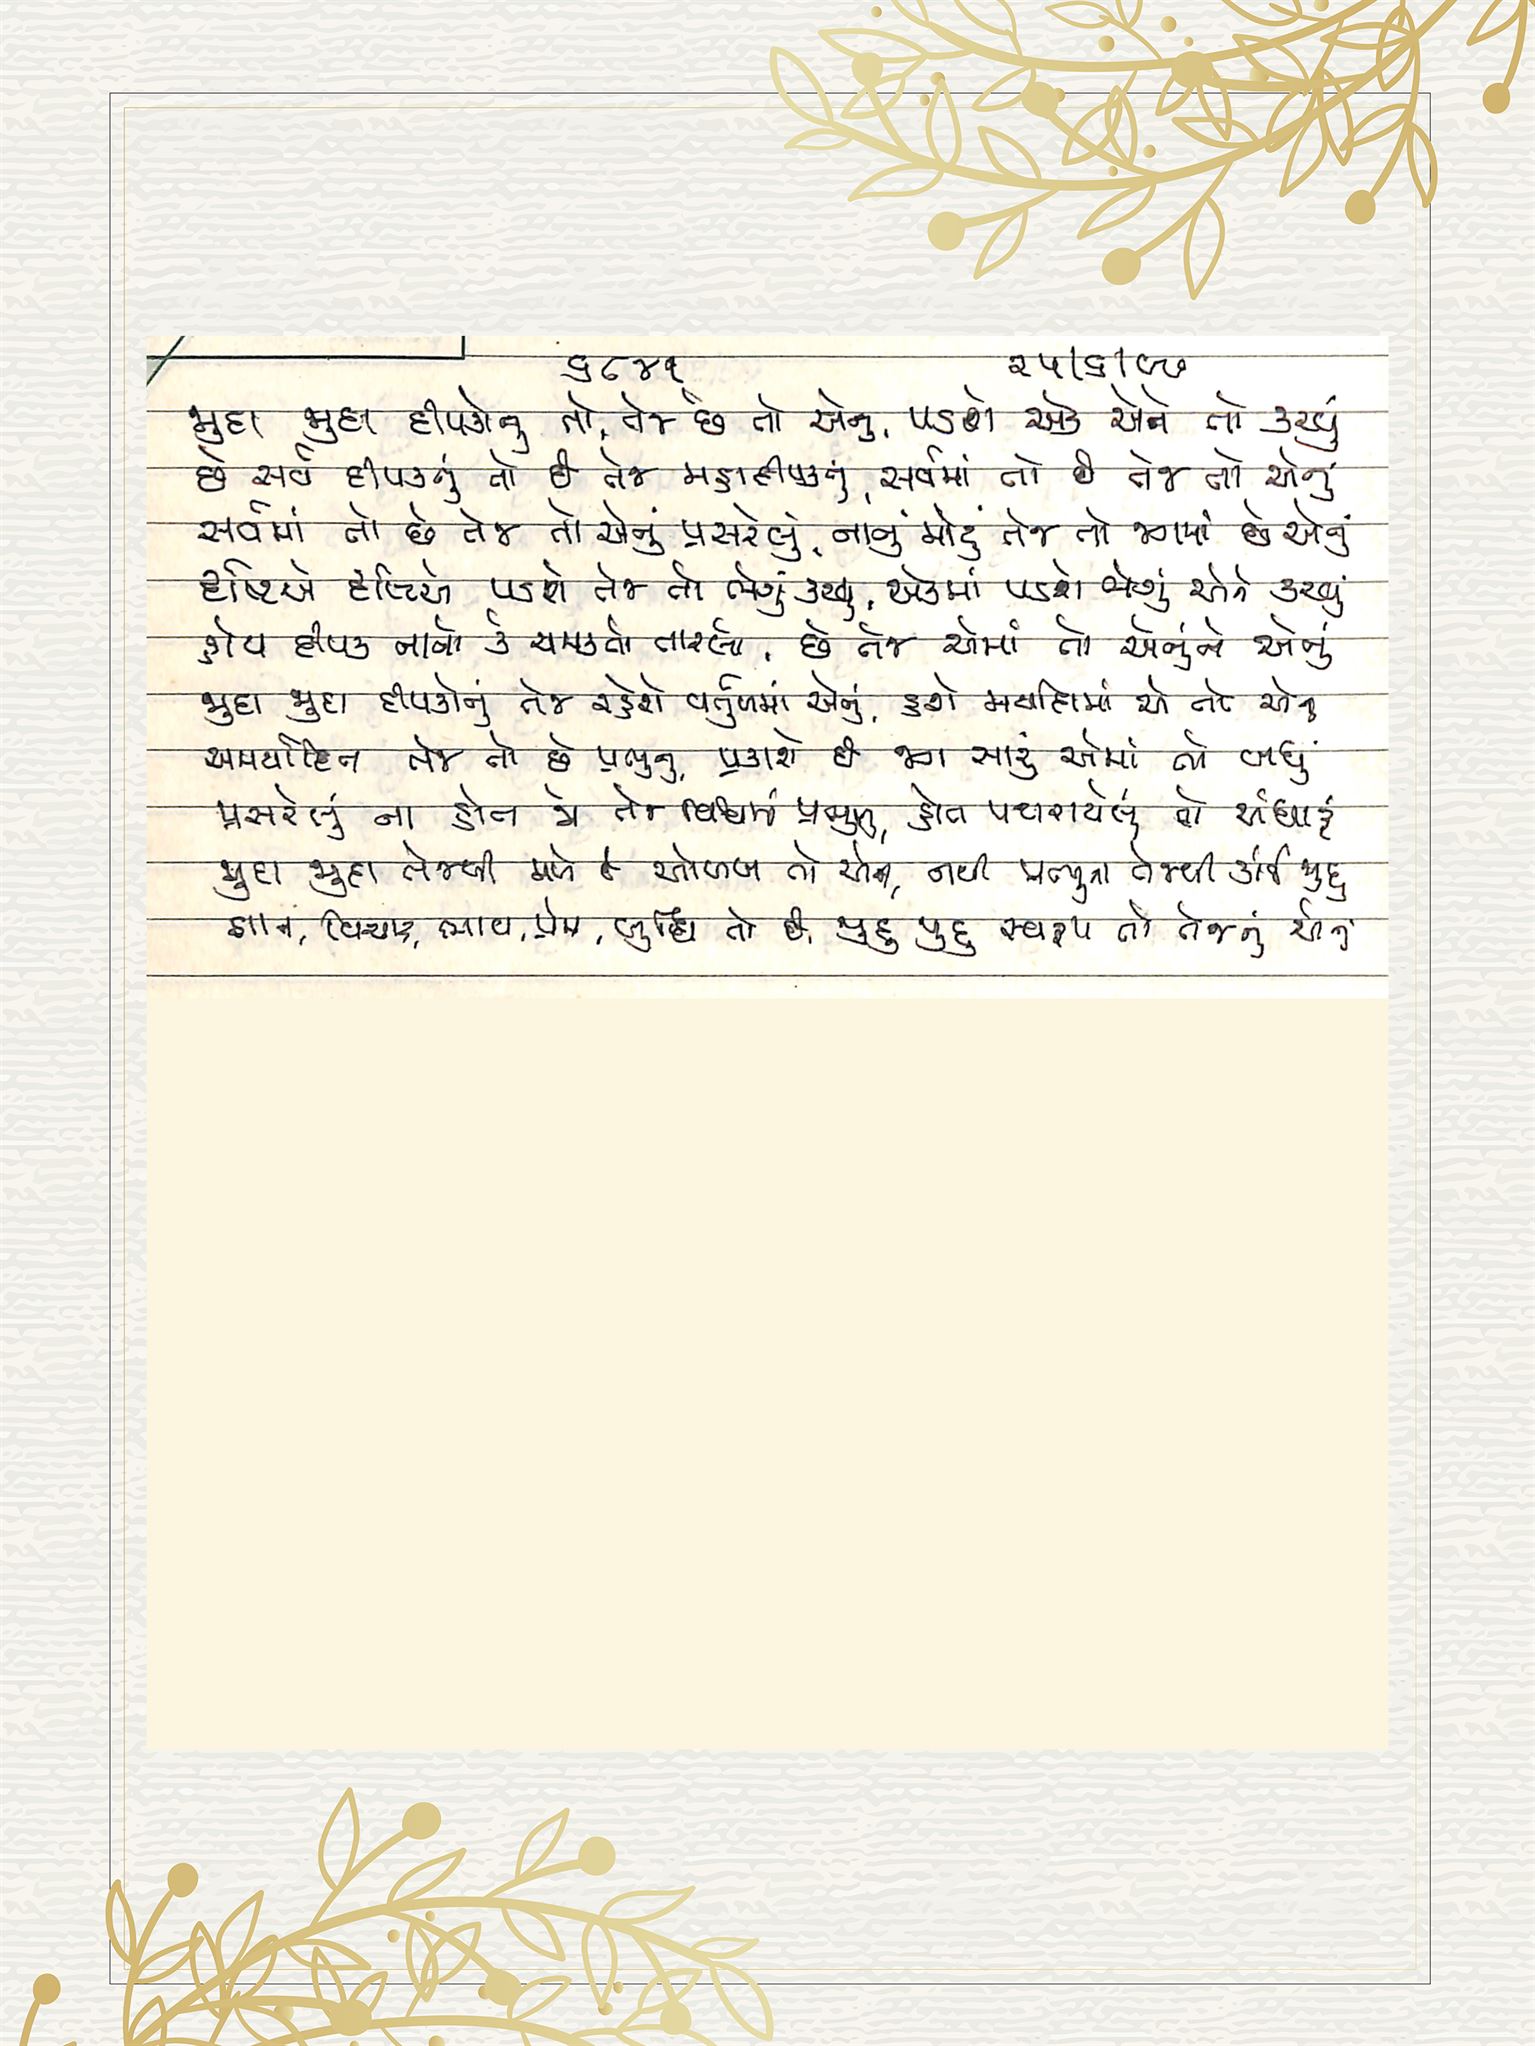 ૬૮૪૧ ૨૫/૬/૯૭
જુદા જુદા દીપકોનુ તો, તેજ છે તો એનુ, પડશે એક એને તો કરવું
છે સર્વ દીપકનું તો છે તેજ મહાદીપકનું, સર્વમાં તો છે તેજ તો એનું
સર્વમાં તો છે તેજ તો એનું પ્રસરેલું, નાનું મોટું તેજ તો જગમાં છે એનું
દૃષ્ટિએ દૃષ્ટિએ પડશે તેજ તો ભેગું કરવુ, એકમાં પડશે ભેગું એને કરવું
હોય દીપક નાનો કે ચમકતો તારલો, છે તેજ એમાં તો એનુંને એનું
જુદા જુદા દીપકોનું તેજ રહેશે વર્તુળમાં એનું, હશે મર્યાદામાં એ તો એનુ
અમર્યાદિત તેજ તો છે પ્રભુનુ, પ્રકાશે છે જગ સારું એમાં તો બધું
પ્રસરેલું ના હોત જો તેજ વિશ્વમાં પ્રભુનુ, હોત પથરાયેલું તો અંધારૂં
જુદા જુદા તેજથી મળે છે ઓળખ તો એની, નથી પ્રભુના તેજથી કાંઈ જુદુ
જ્ઞાન, વિચાર, ભાવ, પ્રેમ, બુદ્ધિ તો છે, જુદુ જુદુ સ્વરૂપ તો તેજનું એનું